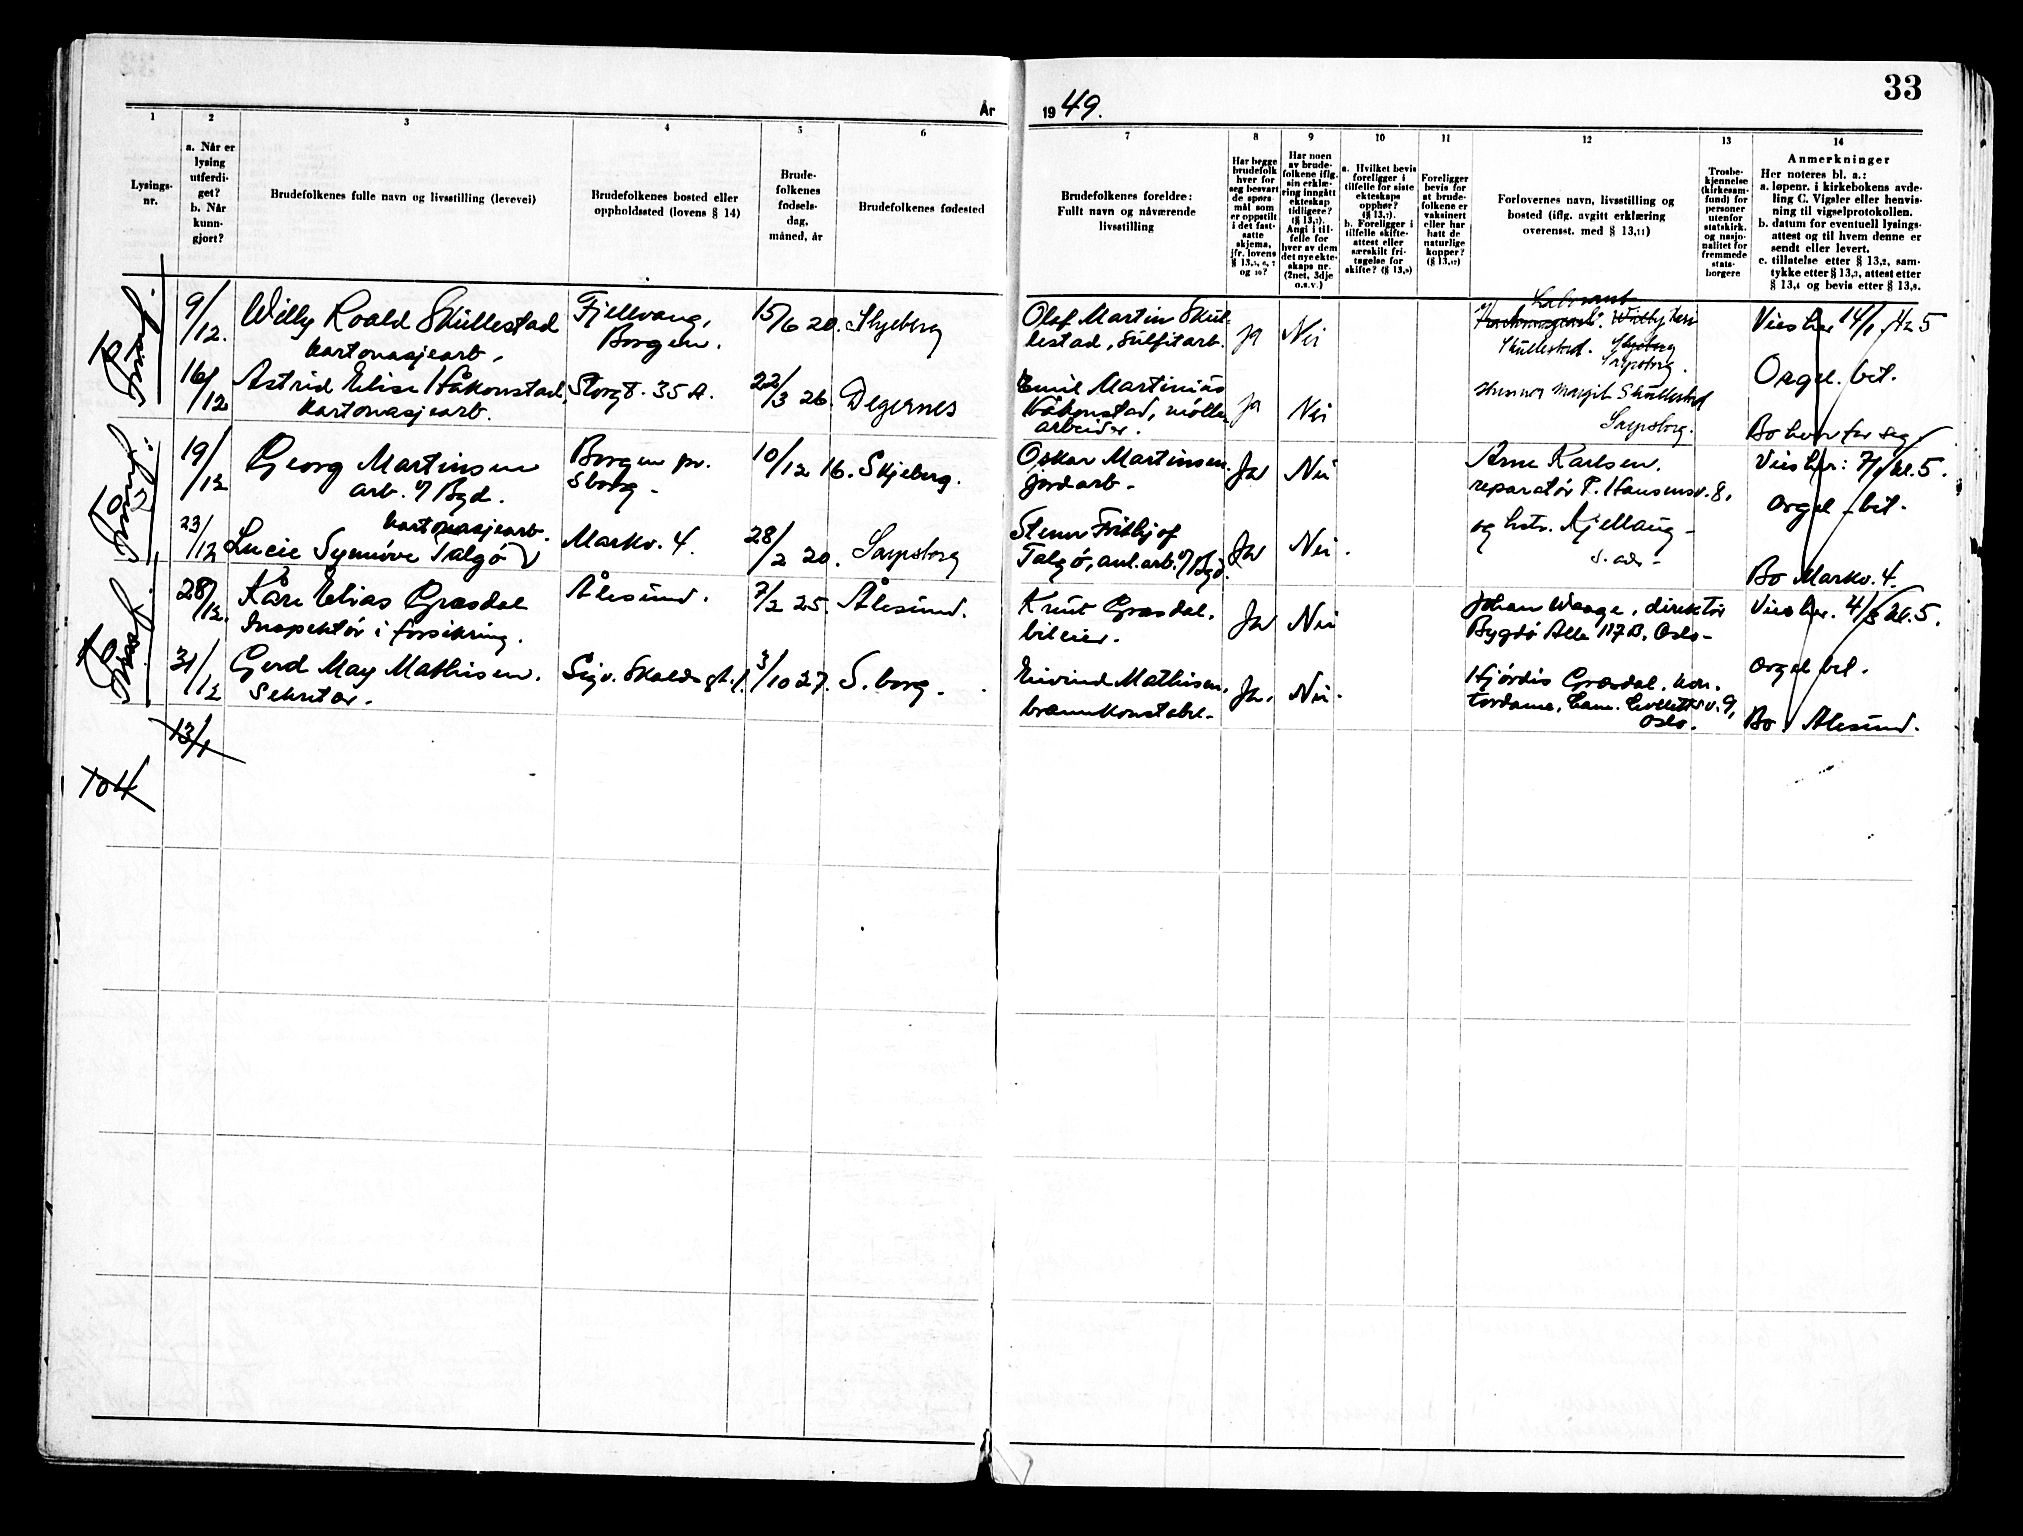 33
År
19 49.
1
2
3
4
5
6
7
8
9
10
11
12
13
14
Lysings-
nr.
a. Når er
lysing
utferdi-
get?
b. Når
kunn-
gjort?
Brudefolkenes fulle navn og livsstilling (levevei)
Brudefolkenes bosted eller
oppholdssted (lovens § 14)
Brude-
folkenes
fødsels-
dag,
måned, år
Brudefolkenes fødested
Brudefolkenes foreldre:
Fullt navn og nåværende
livsstilling
Har begge
brudefolk
hver for
seg besvart
de spørs-
mål som
er oppstilt
i det fast-
satte
skjema,
jfr. lovens
§ 13,5, 6, 7
og 10?
Har noen
av brude-
folkene iflg.
sin erklæ-
ring inngått
ekteskap
tidligere?
(§ 13,7).
Angi i til-
felle for
hver av dem
det nye ekte-
skaps nr.
(2net, 3dje
o.s.v.)
a. Hvilket bevis
foreligger i
tilfelle for siste
ekteskaps
opphør?
(§ 13,7).
b. Foreligger i
tilfelle skifte-
attest eller
særskilt fri-
tagelse for
skifte? (§ 13,9)
Foreligger
bevis for
at brude-
folkene er
vaksinert
eller har
hatt de
naturlige
kopper?
(§ 13,12)
Forlovernes navn, livsstilling og
bosted (iflg. avgitt erklæring
overensst. med § 13,11)
Trosbe-
kjennelse
(kirkesam-
fund) for
personer
utenfor
statskirk.
og nasjo-
nalitet for
fremmede
stats-
borgere
Anmerkninger
Her noteres bl. a.:
a. løpenr. i kirkebokens avde-
ling C. Vigsler eller henvis-
ning til vigselprotokollen.
b. datum for eventuell lysings-
attest og til hvem denne er
sendt eller levert.
c. tillatelse etter § 13,2, sam-
tykke etter § 13,3, attest etter
§ 13,4 og bevis etter § 13,8.
9/12. Willy Roald Skullestad Fjellvang, 15/6 20. Skjeberg Olaf Martin Skul- ja Nei
kartonasjearb. Borgen. lestad, Sulfitarb. Skullestad. Sarpsborg. Vies her 14/1 kl 5
Orgel. bet.
16/12 Astrid Elise Håkonstad, Storgt. 35 A. 22/3 26. Degernes Emil Martinius ja Nei Margit Skullestad
kartonasjearb. Håkonstad, mølle- Sarpsborg.
arbeider. Bo hver for seg.
19/12 Georg Martinsen Borgen pr. 10/12 16. Skjeberg. Oskar Martinsen. Ja Nei Arne Karlsen. Vies her: 7/1 kl. 5.
arb. v/ Byd. Sborg. jordarb. reparatør P. Hansensv. 8. Orgel bet.
kartonasjearb.
23/12 Lucie Synnøve Talgø Markv. 4. 28/2 20. Sarpsborg Stener Fritbjof Ja Nei. og hstr. Kjellaug
Talgø, anl.arb. v/ Byd. s. ads.
Bo Markv. 4.
28/12. Kåre Elias Græsdal Ålesund. 7/2 25. Ålesund. Knut Græsdal. Ja Nei Johan Waage, direktør Vies her. 4/3 kl. 5.
Inspektør i forsikring. bileier. Bygdø Alle 117 B. Oslo
31/12 Gerd May Mathisen. Sigv. Skalds gt. 1. 3/10 27. S.borg. Eivind Mathisen. Ja. Nei. Hjørdis Græsdal, kon- Orgel bet.
Sekretær. brannkonstabel. tordame, Cam. Collettsv. 9,
Oslo. Bo Ålesund.
13/1
104